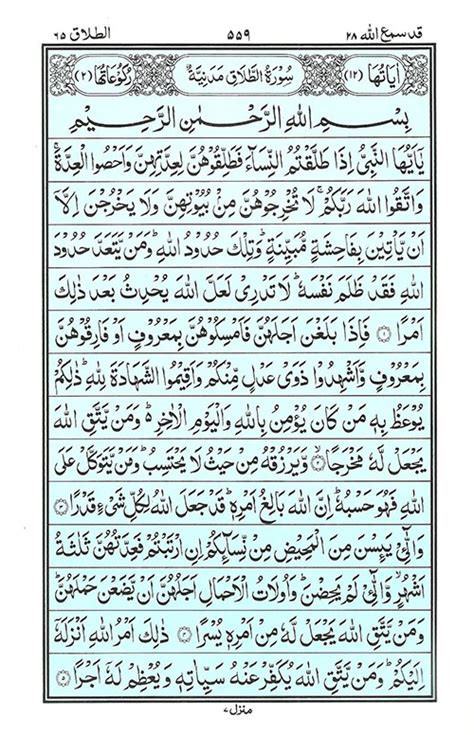 قد سمع الله ٢٨ ٥٥٩ الطلاق ٦٥
اٰيَاتُهَا (١٢) سُوْرَةُ الطَّلَاقِ مَدَنِيَّةٌ رُكُوْعَاتُهَا (٢)
بِسْمِ اللهِ الرَّحْمٰنِ الرَّحِيْمِ
يٰۤاَيُّهَا النَّبِيُّ اِذَا طَلَّقْتُمُ النِّسَآءَ فَطَلِّقُوْهُنَّ لِعِدَّتِهِنَّ وَاَحْصُوا الْعِدَّةَ ۚ
وَاتَّقُوا اللهَ رَبَّكُمْ ۚ لَا تُخْرِجُوْهُنَّ مِنْۢ بُيُوْتِهِنَّ وَلَا يَخْرُجْنَ اِلَّاۤ
اَنْ يَّاْتِيْنَ بِفَاحِشَةٍ مُّبَيِّنَةٍ ؕ وَتِلْكَ حُدُوْدُ اللهِ ؕ وَمَنْ يَّتَعَدَّ حُدُوْدَ
اللهِ فَقَدْ ظَلَمَ نَفْسَهٗ ؕ لَا تَدْرِيْ لَعَلَّ اللهَ يُحْدِثُ بَعْدَ ذٰلِكَ
اَمْرًا ۝١ فَاِذَا بَلَغْنَ اَجَلَهُنَّ فَاَمْسِكُوْهُنَّ بِمَعْرُوْفٍ اَوْ فَارِقُوْهُنَّ
بِمَعْرُوْفٍ وَّاَشْهِدُوْا ذَوَيْ عَدْلٍ مِّنْكُمْ وَاَقِيْمُوا الشَّهَادَةَ لِلهِ ؕ ذٰلِكُمْ
يُوْعَظُ بِهٖ مَنْ كَانَ يُؤْمِنُ بِاللهِ وَالْيَوْمِ الْاٰخِرِ ؕ وَمَنْ يَّتَّقِ اللهَ
يَجْعَلْ لَّهٗ مَخْرَجًا ۝٢ وَّيَرْزُقْهُ مِنْ حَيْثُ لَا يَحْتَسِبُ ؕ وَمَنْ يَّتَوَكَّلْ عَلَى
اللهِ فَهُوَ حَسْبُهٗ ؕ اِنَّ اللهَ بَالِغُ اَمْرِهٖ ؕ قَدْ جَعَلَ اللهُ لِكُلِّ شَيْءٍ قَدْرًا ۝٣
وَالّٰٓـِٔيْ يَئِسْنَ مِنَ الْمَحِيْضِ مِنْ نِّسَآئِكُمْ اِنِ ارْتَبْتُمْ فَعِدَّتُهُنَّ ثَلٰثَةُ
اَشْهُرٍ ۙ وَّالّٰٓـِٔيْ لَمْ يَحِضْنَ ؕ وَاُولَاتُ الْاَحْمَالِ اَجَلُهُنَّ اَنْ يَّضَعْنَ حَمْلَهُنَّ ؕ
وَمَنْ يَّتَّقِ اللهَ يَجْعَلْ لَّهٗ مِنْ اَمْرِهٖ يُسْرًا ۝٤ ذٰلِكَ اَمْرُ اللهِ اَنْزَلَهٗۤ
اِلَيْكُمْ ؕ وَمَنْ يَّتَّقِ اللهَ يُكَفِّرْ عَنْهُ سَيِّاٰتِهٖ وَيُعْظِمْ لَهٗۤ اَجْرًا ۝٥
منزل ٧